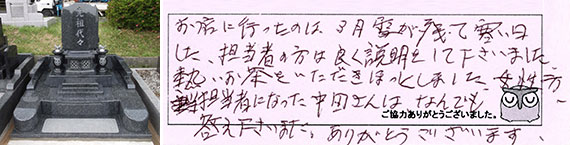 元祖代々
お店に行ったのは、3月雪が残って寒い日
した、担当者の方は良く説明をして下さいました、
熱いお茶をいただきほっとしました、女性方
担当者になった中田さんは なんでも
答え下さいました。ありがとうございます、
ご協力ありがとうございました。